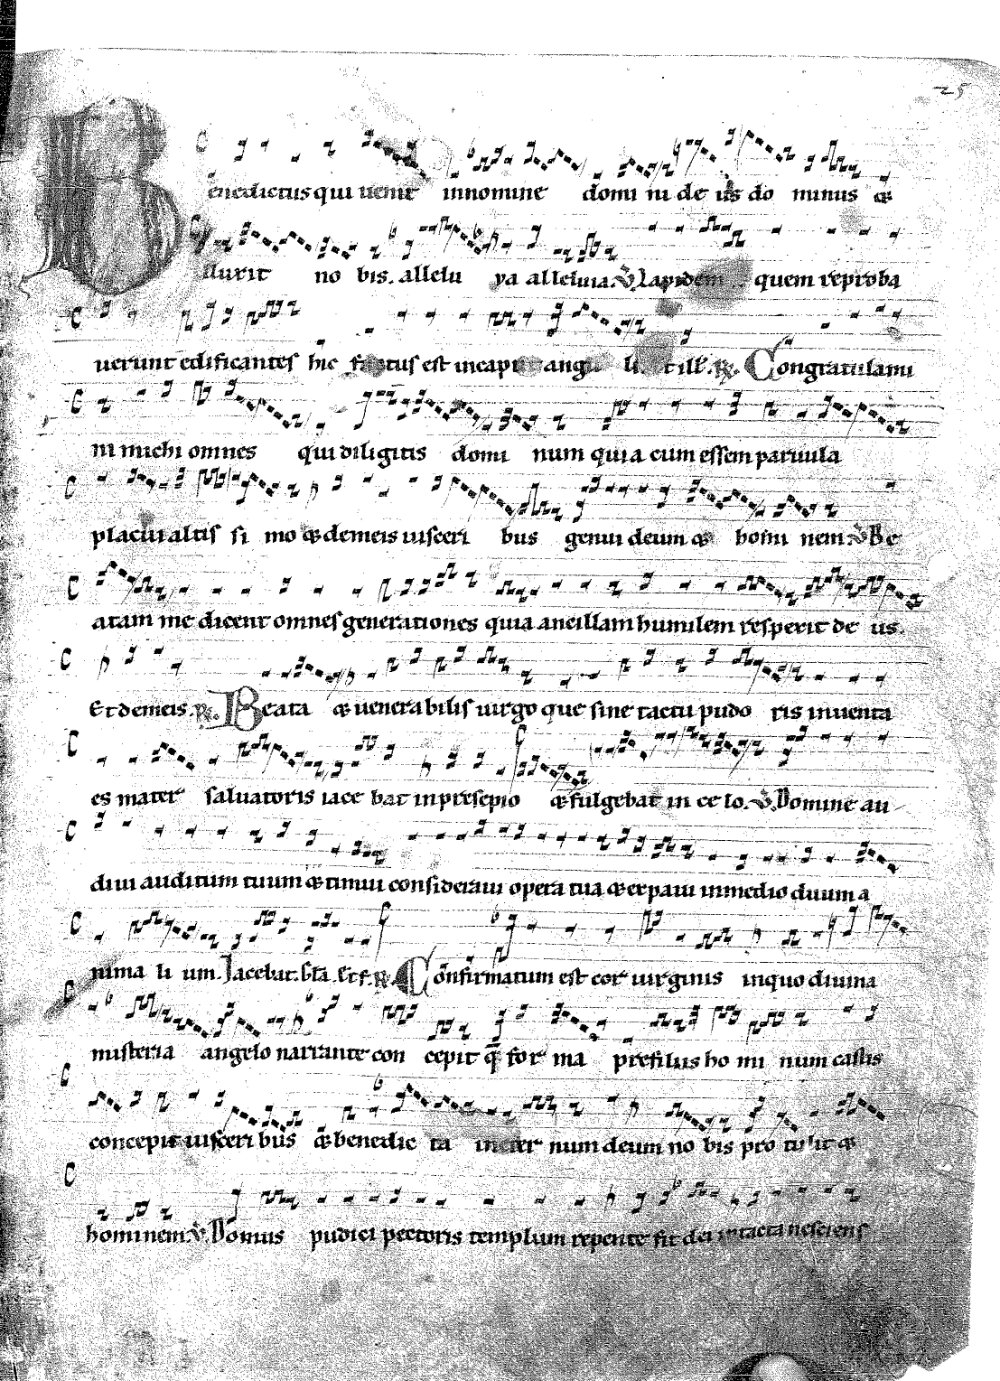 25
Benedictus qui uenit innomine domi ni de us do minus &
illuxit no bis. allelu ya alleluia. ℣. Lapidem quem reproba
uerunt edificantes hic factus est incaput angu li. et ill. ℟. Congratulami
ni michi omnes qui diligitis domi num quia cum essem paruula
placui altis si mo & demeis uisceri bus genui deum & homi nem. ℣. Be
atam me dicent omnes generationes quia ancillam humilem respexit de us.
Et demeis. ℟. Beata & uenera bilis uirgo que sine tactu pudo ris inuenta
es mater saluatoris iace bat inpresepio & fulgebat in ce lo. ℣. Domine au
diui auditum tuum & timui consideraui opera tua & expaui inmedio duum a
nima li um. Jacebat. ℟. Confirmatum est cor uirginis inquo diuina
misteria angelo narrante con cepit q̄ for ma prefilus ho mi num castis
concepit uisceri bus & benedic ta in eter num deum no bis pro tulit &
hominem. ℣. Domus pudici pectoris templum repente fit dei intacta nesciens